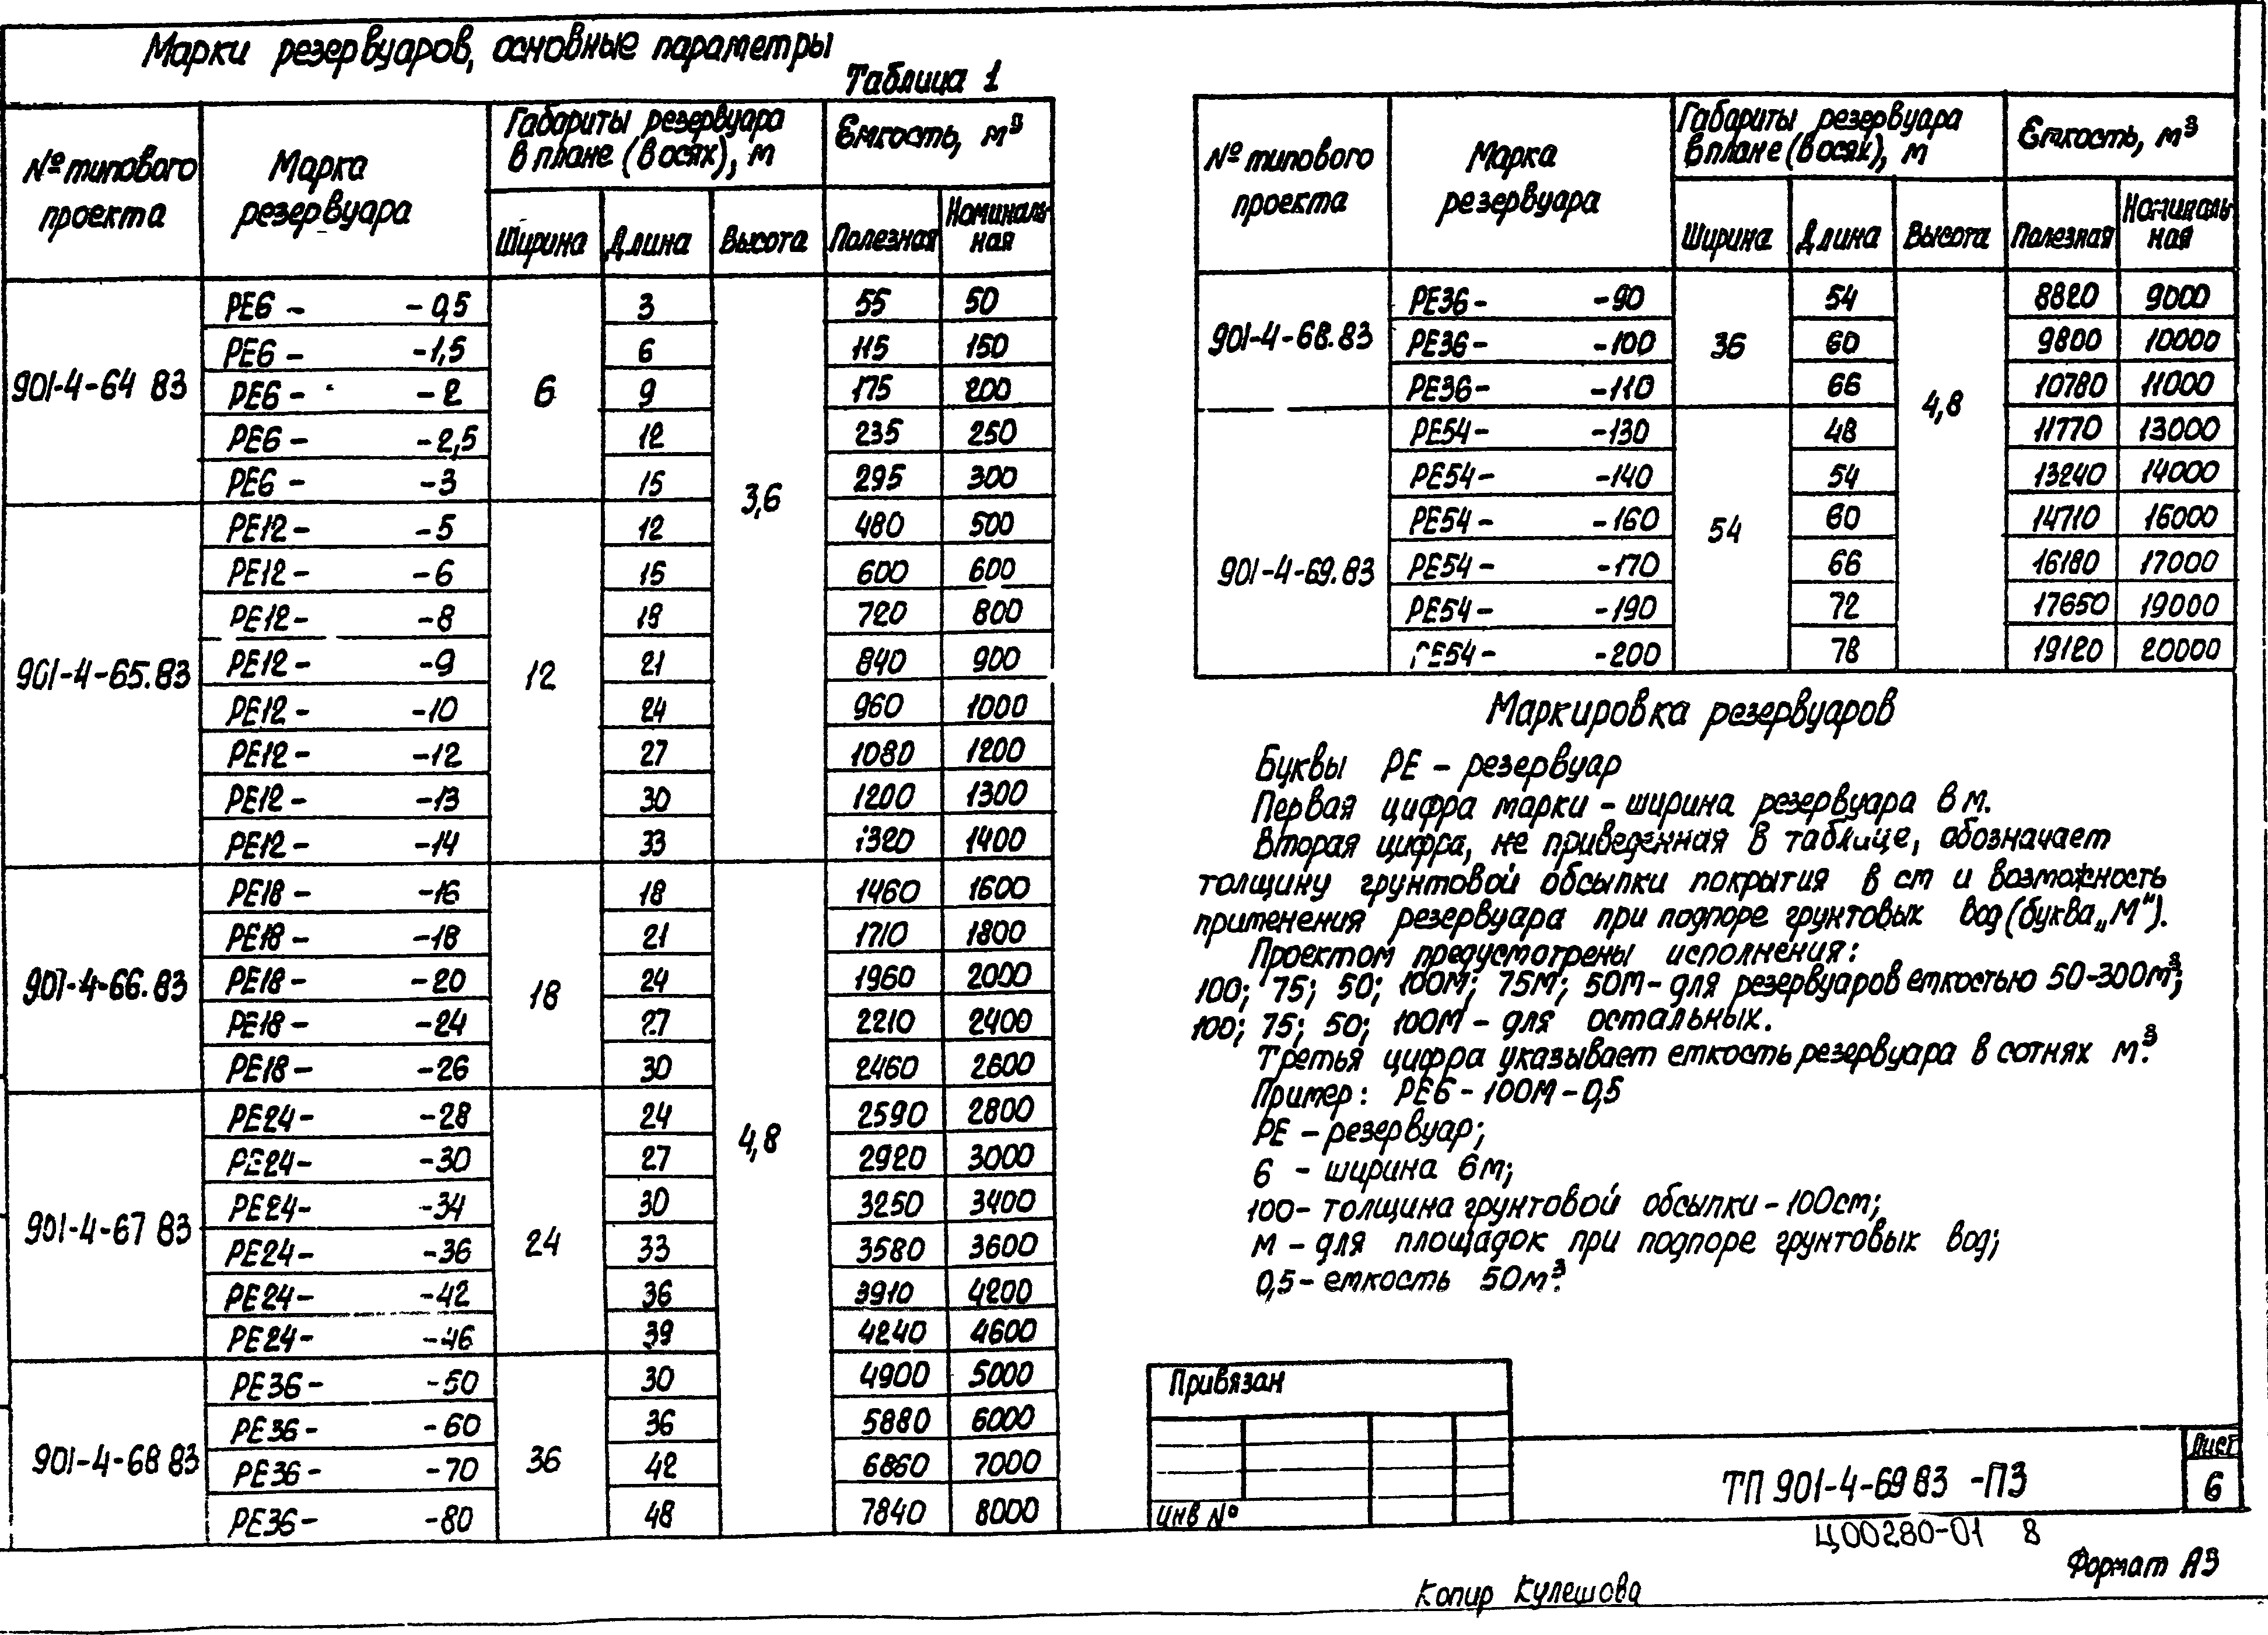 Марки резервуаров, основные параметры
Таблица 1
№ типового проекта | Марка резервуара | Габариты резервуара в плане (в осях), м | Емкость, м³
Ширина | Длина | Высота | Полезная | Номиналь-ная
901-4-64 83 | РЕ6 - -0,5 | 6 | 3 | 3,6 | 55 | 50
РЕ6 - -1,5 | 6 | 115 | 150
РЕ6 - -2 | 9 | 175 | 200
РЕ6 - -2,5 | 12 | 235 | 250
РЕ6 - -3 | 15 | 295 | 300
901-4-65.83 | РЕ12 - -5 | 12 | 12 | 480 | 500
РЕ12 - -6 | 15 | 600 | 600
РЕ12 - -8 | 18 | 720 | 800
РЕ12 - -9 | 21 | 840 | 900
РЕ12 - -10 | 24 | 960 | 1000
РЕ12 - -12 | 27 | 1080 | 1200
РЕ12 - -13 | 30 | 1200 | 1300
РЕ12 - -14 | 33 | 1320 | 1400
901-4-66.83 | РЕ18 - -16 | 18 | 18 | 4,8 | 1460 | 1600
РЕ18 - -18 | 21 | 1710 | 1800
РЕ18 - -20 | 24 | 1960 | 2000
РЕ18 - -24 | 27 | 2210 | 2400
РЕ18 - -26 | 30 | 2460 | 2600
901-4-67 83 | РЕ24 - -28 | 24 | 24 | 2590 | 2800
РЕ24 - -30 | 27 | 2920 | 3000
РЕ24 - -34 | 30 | 3250 | 3400
РЕ24 - -36 | 33 | 3580 | 3600
РЕ24 - -42 | 36 | 3910 | 4200
РЕ24 - -46 | 39 | 4240 | 4600
901-4-68 83 | РЕ36 - -50 | 36 | 30 | 4900 | 5000
РЕ36 - -60 | 36 | 5880 | 6000
РЕ36 - -70 | 42 | 6860 | 7000
РЕ36 - -80 | 48 | 7840 | 8000
№ типового проекта | Марка резервуара | Габариты резервуара в плане (в осях), м | Емкость, м³
Ширина | Длина | Высота | Полезная | Номиналь-ная
901-4-68.83 | РЕ36 - -90 | 36 | 54 | 4,8 | 8820 | 9000
РЕ36 - -100 | 60 | 9800 | 10000
РЕ36 - -110 | 66 | 10780 | 11000
901-4-69.83 | РЕ54 - -130 | 54 | 48 | 11770 | 13000
РЕ54 - -140 | 54 | 13240 | 14000
РЕ54 - -160 | 60 | 14710 | 16000
РЕ54 - -170 | 66 | 16180 | 17000
РЕ54 - -190 | 72 | 17650 | 19000
РЕ54 - -200 | 78 | 19120 | 20000
Маркировка резервуаров
Буквы РЕ - резервуар
Первая цифра марки - ширина резервуара в м.
Вторая цифра, не приведенная в таблице, обозначает
толщину грунтовой обсыпки покрытия в см и возможность
применения резервуара при подпоре грунтовых вод (буква „М").
Проектом предусмотрены исполнения:
100; 75; 50; 100М; 75М; 50М - для резервуаров емкостью 50-300м³;
100; 75; 50; 100М - для остальных.
Третья цифра указывает емкость резервуара в сотнях м³.
Пример: РЕ6 - 100М - 0,5
РЕ - резервуар;
6 - ширина 6м;
100 - толщина грунтовой обсыпки - 100см;
М - для площадок при подпоре грунтовых вод;
0,5 - емкость 50м³.
Привязан
Инв №
ТП 901-4-69 83 -ПЗ
Лист
6
Ц00280-01 8
Формат А3
Копир Кулешова